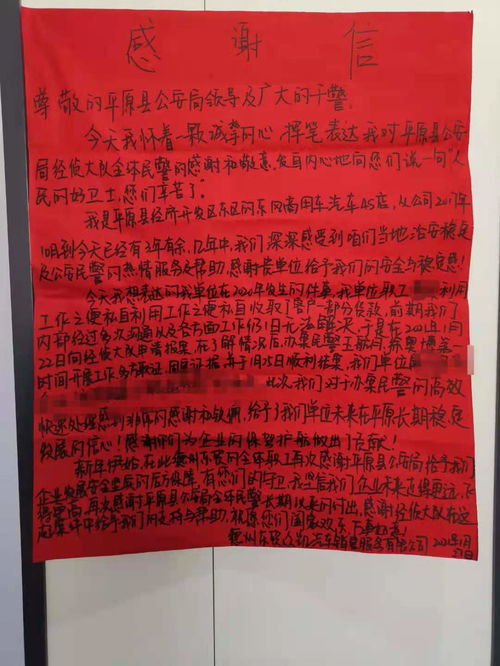 感谢信
尊敬的平原县公安局领导及广大的干警:
今天我怀着一颗诚挚的心,挥笔表达我对平原县公安
局经侦大队全体民警的感谢和敬意,发自内心地向您们说一句"人
民的好卫士,您们辛苦了"
我是平原县经济开发区东区的东风商用车汽车4S店,从公司2017年
10月到今天已经有3年有余,几年中,我们深深感受到咱们当地治安稳定
及公安民警的热情服务及帮助,感谢贵单位给予我们的安全与稳定感!
今天我想表达的我单位在2020年发生的件事,我单位职工 利用
工作之便私自利用工作之便私自收取了客户一部分货款,前期我们
内部经过多次沟通以及各方面工作仍旧无法解决,于是在2021年1月
22日向经侦大队申请报案,在了解情况后,办案民警王敏
时间开展工作多方取证,固定证据,并于1月25日顺利结案,我们单位
此次,我们对于办案民警的高效
快速处理感到非常的感谢和钦佩,给予了我们单位未来在平原长期稳定
发展的信心!感谢你们为企业的保驾护航做出了贡献!
新年伊始,在此德州东 的全体职工再次感谢平原县公安局给予我们
企业发展安全坚固的后方保障,有您们的付出,我坚信我们企业未来走得更远,飞
得更高,再次感谢平原县公安局全体民警长期以来的付出,感谢经侦大队在这
起案件中给予我们的支持与帮助,祝愿您们阖家欢乐,万事如意!
德州东 众凯汽车销售服务有限公司 2021年1月
27日